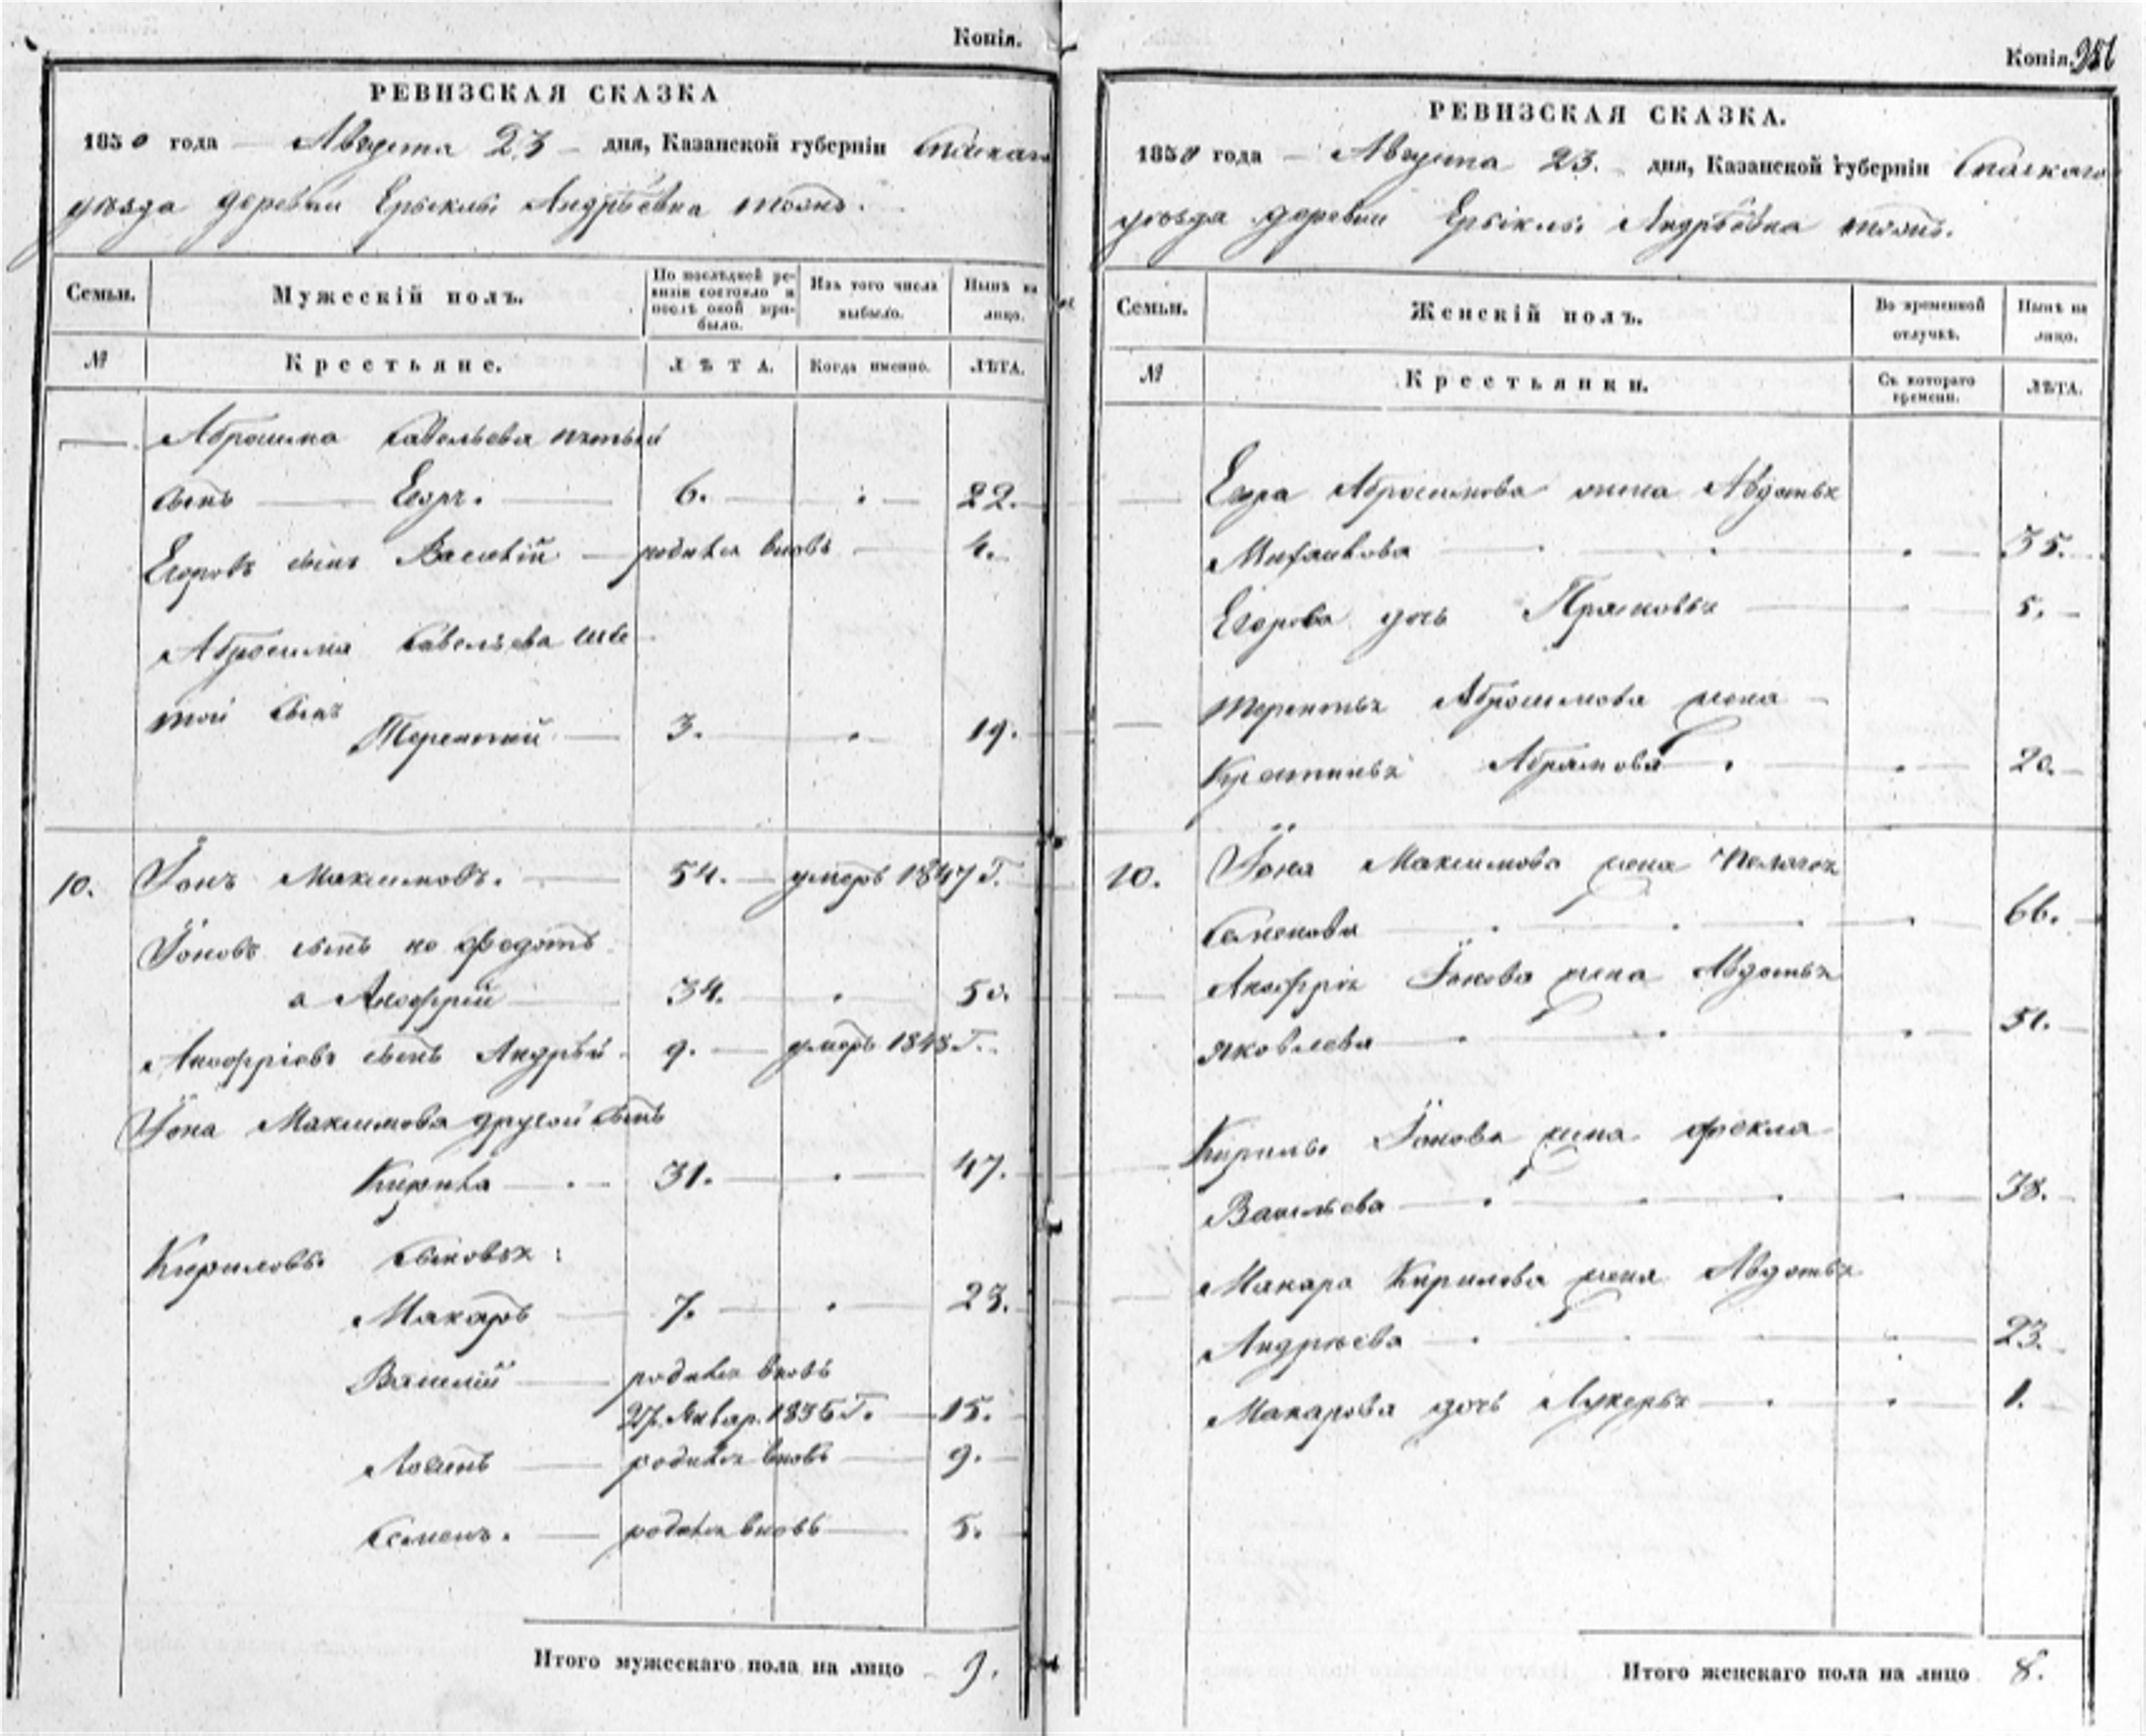 Копія.
РЕВИЗСКАЯ СКАЗКА
1850 года — Августа 23 — дня, Казанской губерніи Спаскаго
уѣзда деревни Ерыклы Андрѣевка тожъ.
Семьи.
Мужескій полъ.
По послѣдней ревизіи состояло и послѣ оной прибыло.
Изъ того числа выбыло.
Нынѣ на лицо.
№
Крестьяне.
ЛѢТА.
Когда именно.
ЛѢТА.
Абросима Савельева пятый
сынъ Егоръ. 6. 22.
Егоровъ сынъ Василій родился вновь 4.
Абросима Савельева шес
той сынъ
Терентий 3. 19.
10. Іонъ Максимовъ. 54. умеръ 1847 Г.
Іоновъ сынъ не Федотъ
а Анофрій 34. 50.
Анофріевъ сынъ Андрѣй 9. умеръ 1848 Г.
Іона Максимова другой сынъ
Кирила 31. 47.
Кириловы сыновья:
Макаръ 7. 23.
Василій родился вновь
27 Январ. 1835 Г. 15.
родился вновь 9.
Семенъ. родился вновь 5.
Итого мужескаго пола на лицо 9.
Копія. 256
РЕВИЗСКАЯ СКАЗКА.
1850 года — Августа 23. — дня, Казанской губерніи Спаскаго
уѣзда деревни Ерыклы Андрѣевка тожъ.
Семьи.
Женскій полъ.
Во временной отлучкѣ.
Нынѣ на лицо.
№
Крестьянки.
Съ котораго времени.
ЛѢТА.
Егора Абросимова жена Авдотья
Михайлова 35.
Егорова дочь Прасковья 5.
Терентья Абросимова жена
Абрамова 20.
10. Іона Максимова жена Пелагея
Семенова 66.
Анофрія Іонова жена Авдотья
Яковлева 51.
Кирилы Іонова жена Фекла
Васильева 38.
Макара Кирилова жена Авдотья
Андрѣева 23.
Макарова дочь Лукерья 1.
Итого женскаго пола на лицо 8.